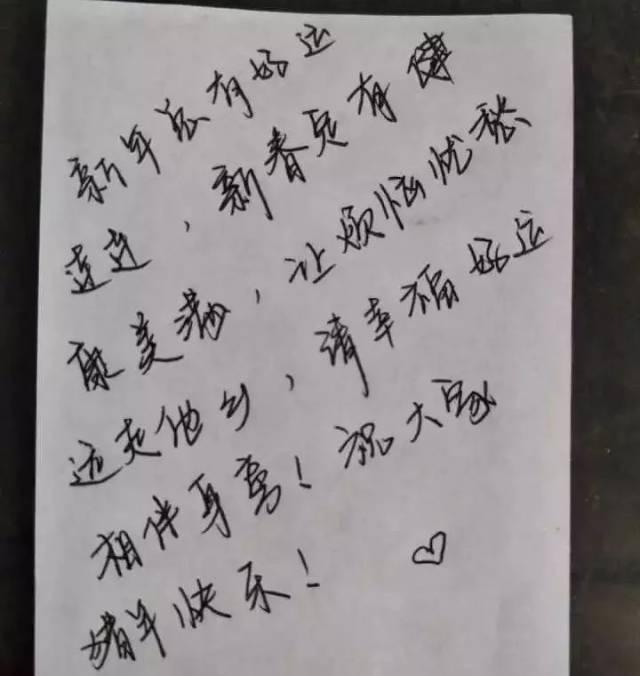 新年总有好运
连连，新春只有健
康美满，让烦恼忧愁
远走他乡，请幸福好运
相伴身旁！祝大家
猪年快乐！